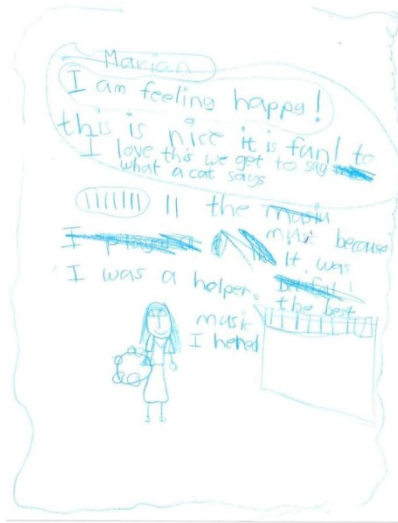 Marian
I am feeling happy!
this is nice it is fun! to
I love this we get to say
what a cat says
11 the
music because
It was
I was a helper.
the best
music
I hered